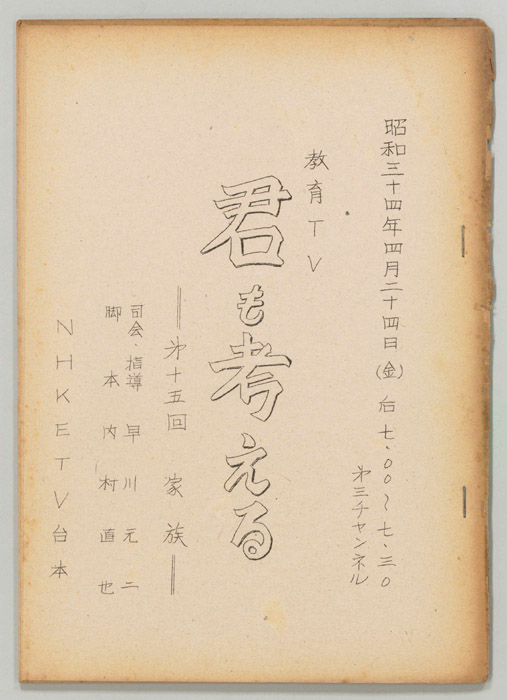 昭和三十四年四月二十四日(金)后七.00〜七.三0
第三チャンネル
教育TV
君も考える
――第十五回 家族――
司会・指導 早川元二
脚本 内村直也
NHKETV台本